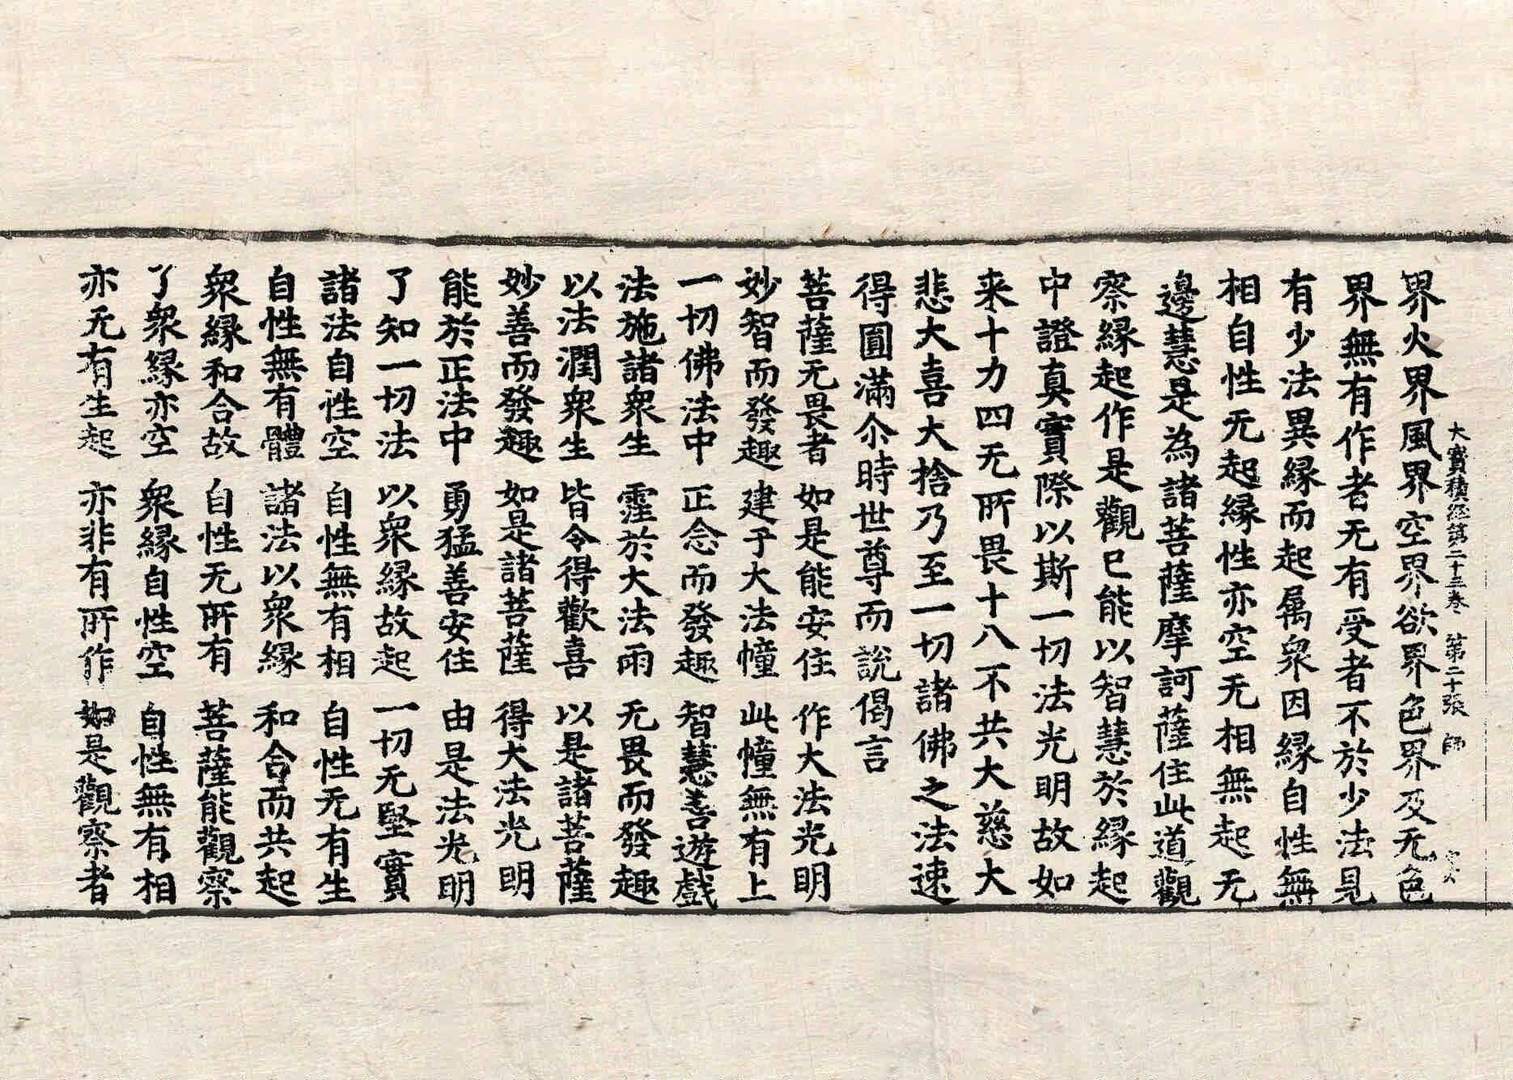 大寳積經第二十三卷　第二十張　師
界火界風界空界欲界色界及无色
界無有作者无有受者不於少法見
有少法異縁而起属衆因縁自性無
相自性无起縁性亦空无相無起无
邊慧是為諸菩薩摩訶薩住此道觀
察縁起作是觀已能以智慧於縁起
中證真實際以斯一切法光明故如
来十力四无所畏十八不共大慈大
悲大喜大捨乃至一切諸佛之法速
得圓滿尒時世尊而說偈言
菩薩无畏者　如是能安住　作大法光明
妙智而發趣　建于大法幢　此幢無有上
一切佛法中　正念而發趣　智慧善遊戲
法施諸衆生　霔於大法雨　无畏而發趣
以法潤衆生　皆令得歡喜　以是諸菩薩
妙善而發趣　如是諸菩薩　得大法光明
能於正法中　勇猛善安住　由是法光明
了知一切法　以衆縁故起　一切无堅實
諸法自性空　自性無有相　自性无有生
自性無有體　諸法以衆縁　和合而共起
衆縁和合故　自性无所有　菩薩能觀察
了衆縁亦空　衆縁自性空　自性無有相
亦无有生起　亦非有所作　如是觀察者